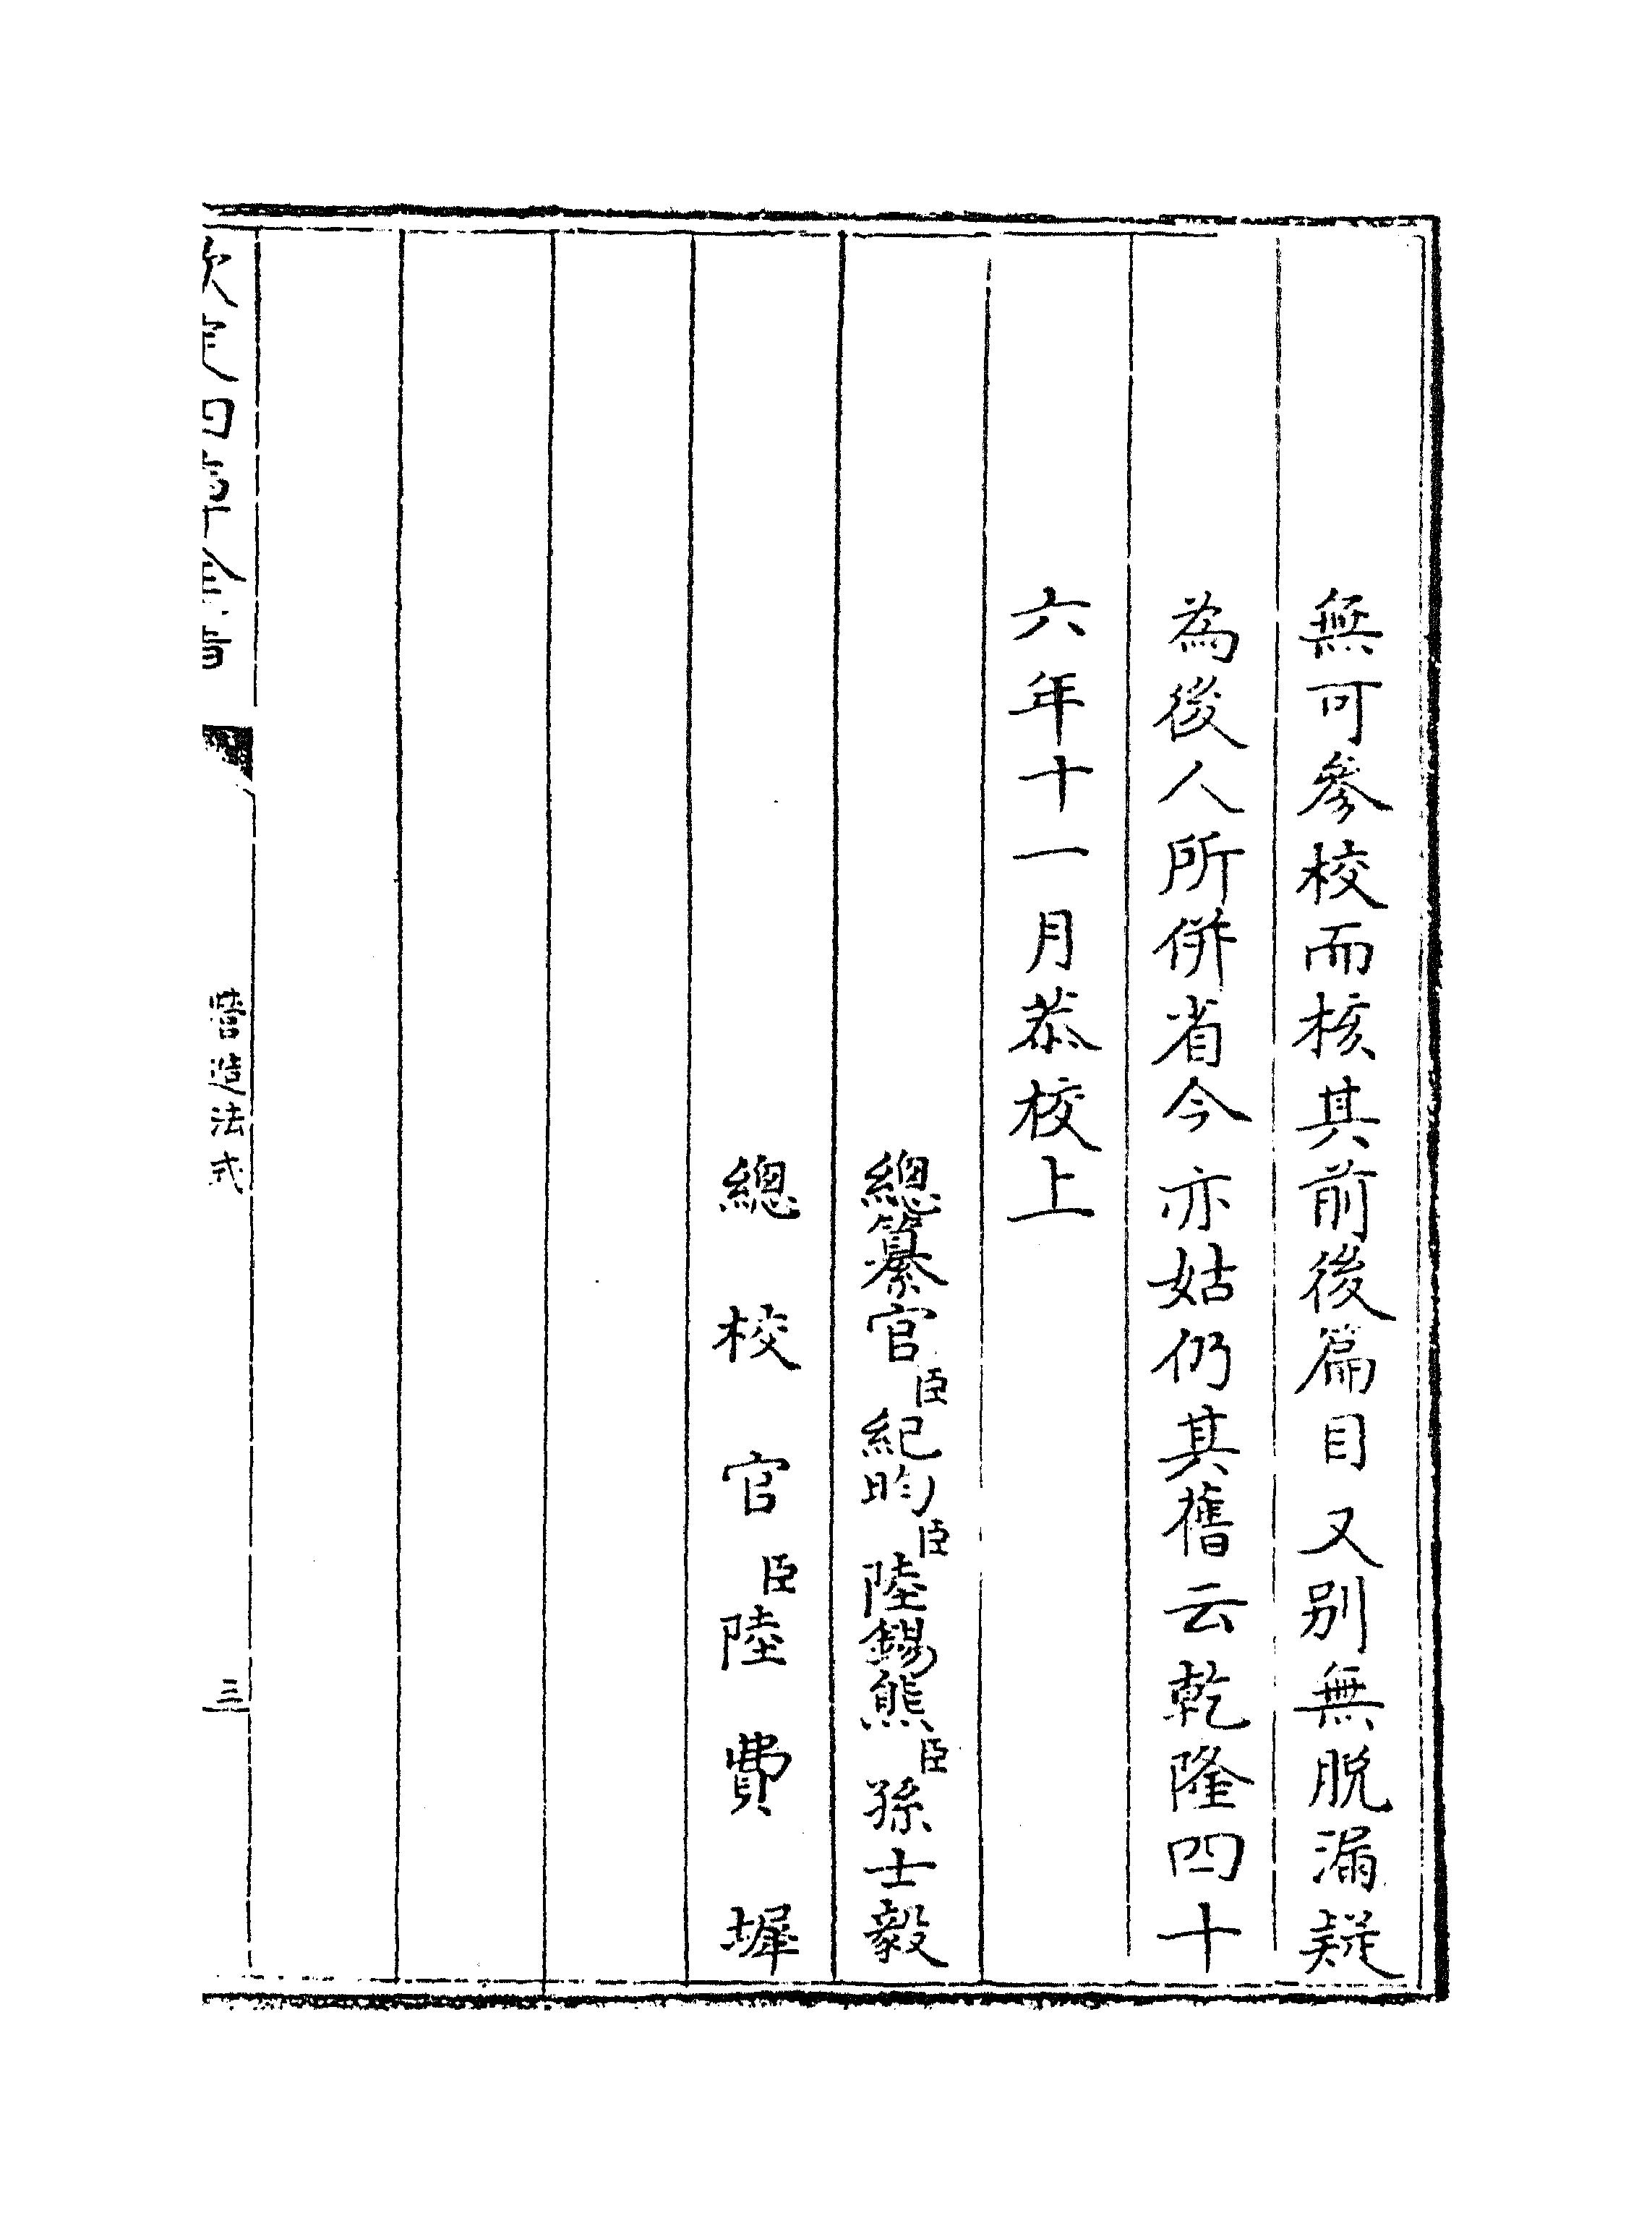 無可參校而核其前後篇目又别無脫漏疑
為後人所併省今亦姑仍其舊云乾隆四十
六年十一月恭校上
總纂官臣紀昀臣陸錫熊臣孫士毅
總校官臣陸費墀
欽定四庫全書
營造法式
三